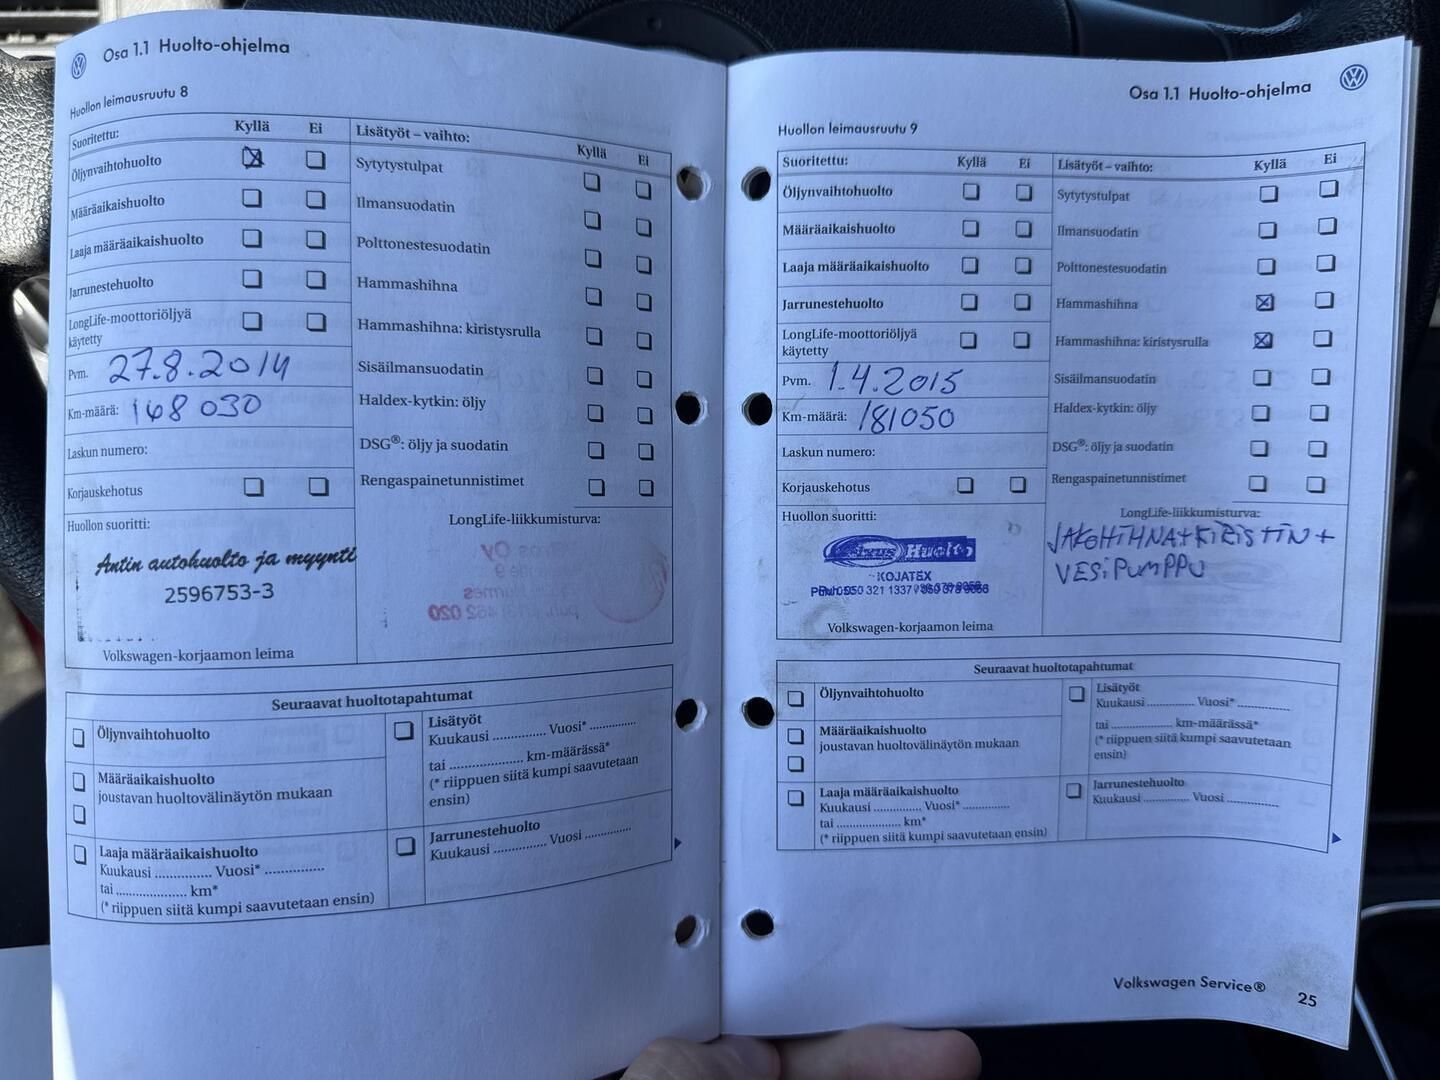 Osa 1.1 Huolto-ohjelma
Huollon leimausruutu 8
Suoritettu: Kyllä Ei
Öljynvaihtohuolto
Määräaikaishuolto
Laaja määräaikaishuolto
Jarrunestehuolto
LongLife-moottoriöljyä
käytetty
Pvm. 27.8.2014
Km-määrä: 148 030
Laskun numero:
Korjauskehotus
Huollon suoritti:
Antin autohuolto ja myynti
2596753-3
Volkswagen-korjaamon leima
Lisätyöt – vaihto: Kyllä Ei
Sytytystulpat
Ilmansuodatin
Polttonestesuodatin
Hammashihna
Hammashihna: kiristysrulla
Sisäilmansuodatin
Haldex-kytkin: öljy
DSG®: öljy ja suodatin
Rengaspainetunnistimet
LongLife-liikkumisturva:
Seuraavat huoltotapahtumat
Öljynvaihtohuolto
Määräaikaishuolto
joustavan huoltovälinäytön mukaan
Laaja määräaikaishuolto
Kuukausi .............. Vuosi* ...............
tai .................. km*
(* riippuen siitä kumpi saavutetaan ensin)
Lisätyöt
Kuukausi .............. Vuosi* ............
tai ................... km-määrässä*
(* riippuen siitä kumpi saavutetaan
ensin)
Jarrunestehuolto
Kuukausi .............. Vuosi ..............
Osa 1.1 Huolto-ohjelma
Huollon leimausruutu 9
Suoritettu: Kyllä Ei
Öljynvaihtohuolto
Määräaikaishuolto
Laaja määräaikaishuolto
Jarrunestehuolto
LongLife-moottoriöljyä
käytetty
Pvm. 1.4.2015
Km-määrä: 181050
Laskun numero:
Korjauskehotus
Huollon suoritti:
Huolto
KOJATEX
050 321 1337
Volkswagen-korjaamon leima
Lisätyöt – vaihto: Kyllä Ei
Sytytystulpat
Ilmansuodatin
Polttonestesuodatin
Hammashihna
Hammashihna: kiristysrulla
Sisäilmansuodatin
Haldex-kytkin: öljy
DSG®: öljy ja suodatin
Rengaspainetunnistimet
LongLife-liikkumisturva:
JAKOHIHNA+KIRISTIN+
VESIPUMPPU
Seuraavat huoltotapahtumat
Öljynvaihtohuolto
Määräaikaishuolto
joustavan huoltovälinäytön mukaan
Laaja määräaikaishuolto
Kuukausi ............ Vuosi* ............
tai ................ km*
(* riippuen siitä kumpi saavutetaan ensin)
Lisätyöt
Kuukausi ............ Vuosi* .............
tai .................. km-määrässä*
(* riippuen siitä kumpi saavutetaan
ensin)
Jarrunestehuolto
Kuukausi ............ Vuosi .............
Volkswagen Service® 25